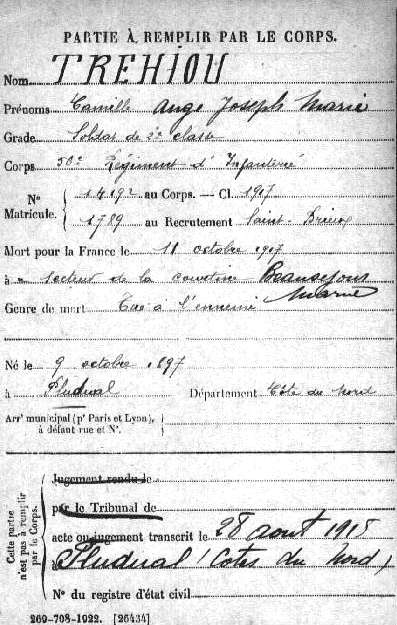 PARTIE À REMPLIR PAR LE CORPS.
Nom TREHIOU
Prénoms Camille Ange Joseph Marie
Grade Soldat de 2e classe
Corps 50e Régiment d'Infanterie
N° Matricule. { 14192 au Corps. — Cl 1917
1789 au Recrutement Saint-Brieuc
Mort pour la France le 11 octobre 1917
à secteur de la courtine Beausejour
Marne
Genre de mort Tué à l'ennemi
Né le 9 octobre 1897
à Pludual Département Côte du Nord
Arrt municipal (pr Paris et Lyon),
à défaut rue et N°.
Cette partie n'est pas à remplir par le Corps.
Jugement rendu le
par le Tribunal de
acte ou jugement transcrit le 28 aout 1918
à Pludual (Cotes du Nord)
N° du registre d'état civil
269-708-1922. [26434]